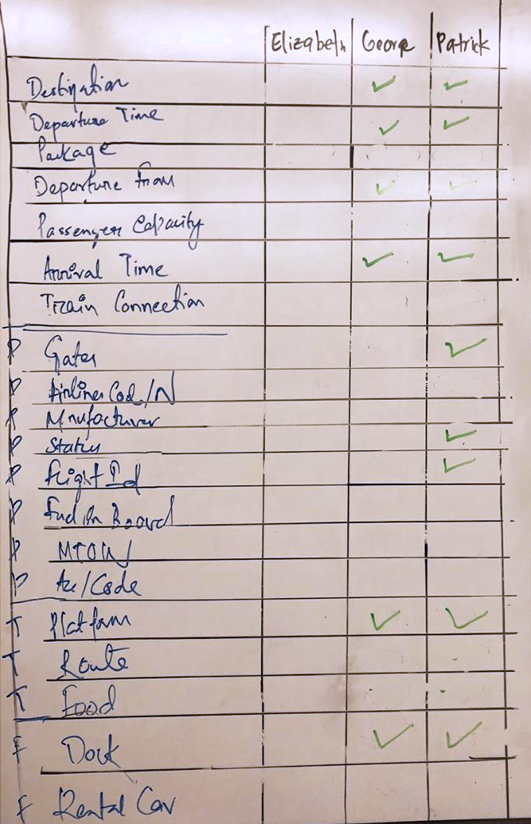 Elizabeth George Patrick
Destination ✓ ✓
Departure Time ✓ ✓
Package
Departure from ✓ ✓
Passenger Capacity
Arrival Time ✓ ✓
Train Connection
P Gates ✓
P Airlines Code/N
P Mnufacturer
P Status ✓
P Flight Id ✓
P Fuel on Board
P MTOW
P Au/Code
T Platform ✓ ✓
T Route
T Food
F Dock ✓ ✓
F Rental Car